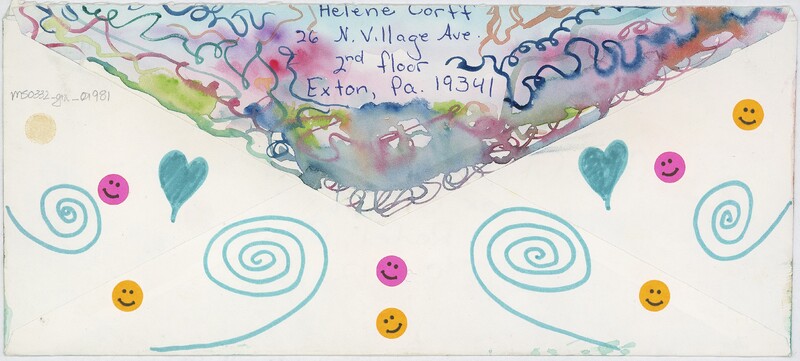 Helene Corff
26 N. Village Ave.
2nd floor
Exton, Pa. 19341